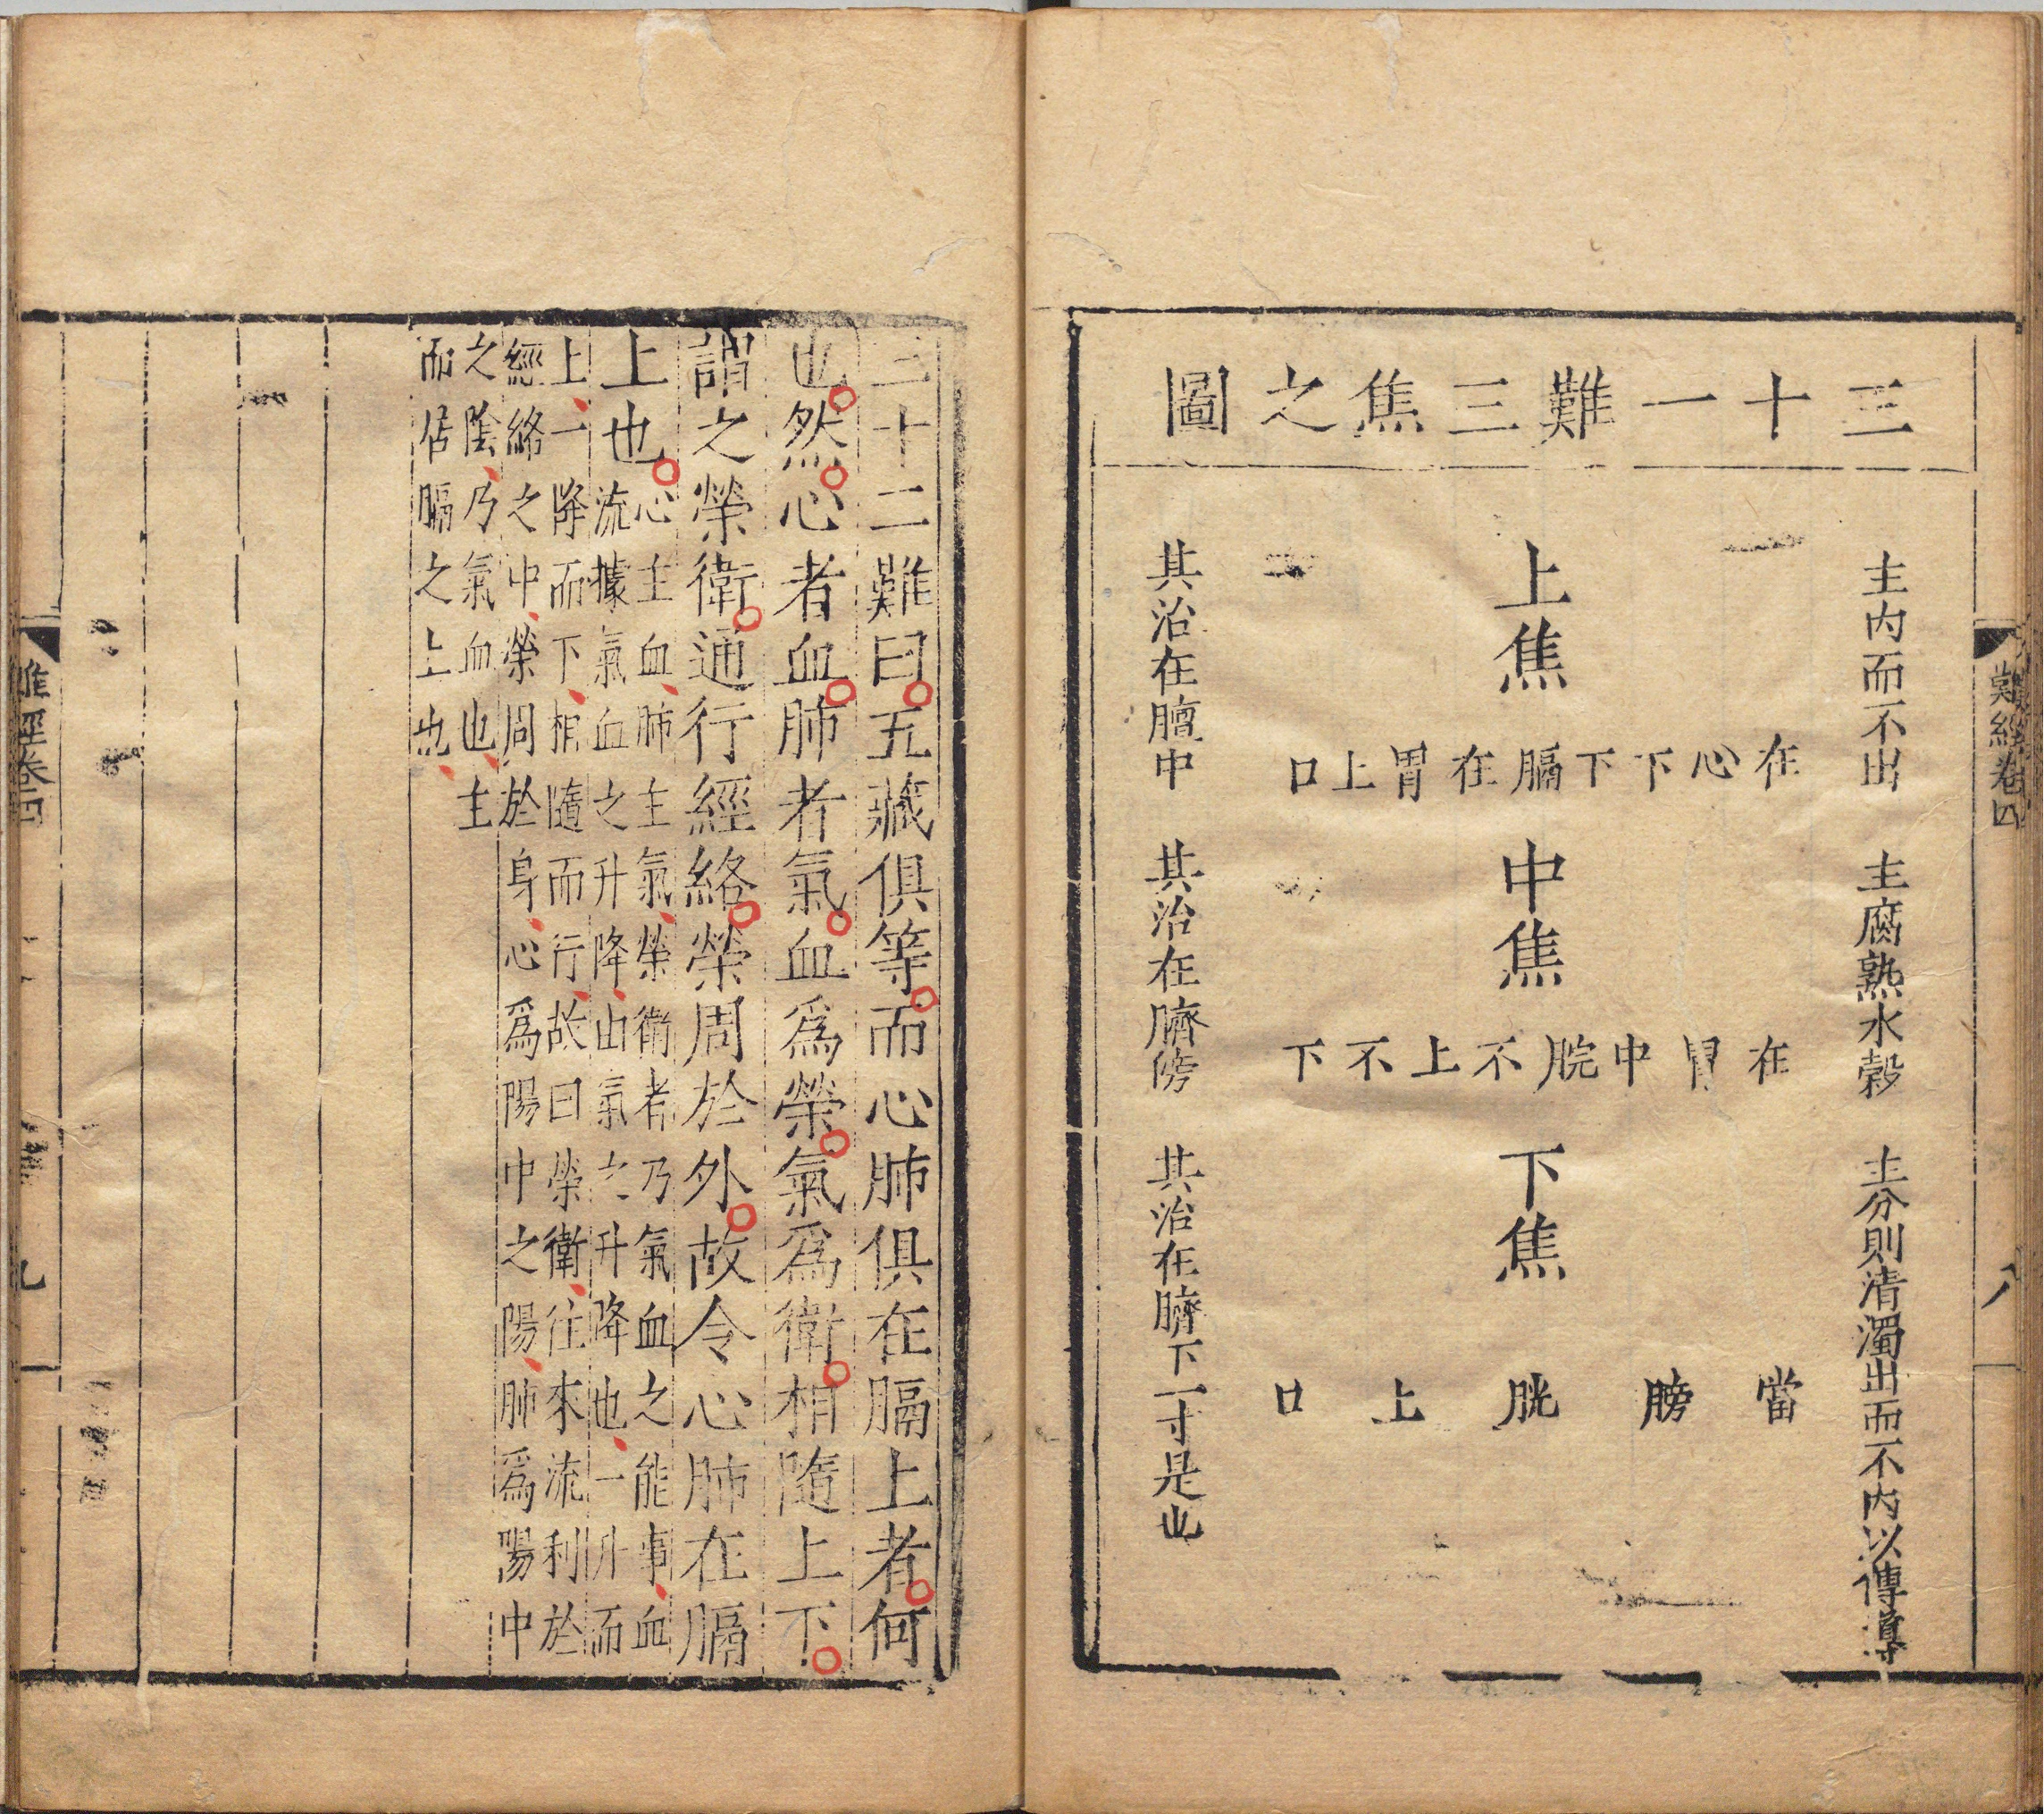 三十一難三焦之圖
主內而不出
上焦
在心下下膈在胃上口
其治在膻中
主腐熟水穀
中焦
在胃中脘不上不下
其治在臍傍
主分則清濁出而不內以傳導
下焦
當膀胱上口
其治在臍下一寸是也
難經卷四
八
三十二難曰五藏俱等而心肺俱在膈上者何
也然心者血肺者氣血爲榮氣爲衛相隨上下
謂之榮衛通行經絡榮周於外故令心肺在膈
上也
心主血肺主氣榮衛者乃氣血之能事血
流據氣血之升降由氣之升降也一升而
上一降而下相隨而行故曰榮衛往來流利於
經絡之中榮周於身心爲陽中之陽肺爲陽中
之陰乃氣血也主
而居膈之上也
難經卷四
九